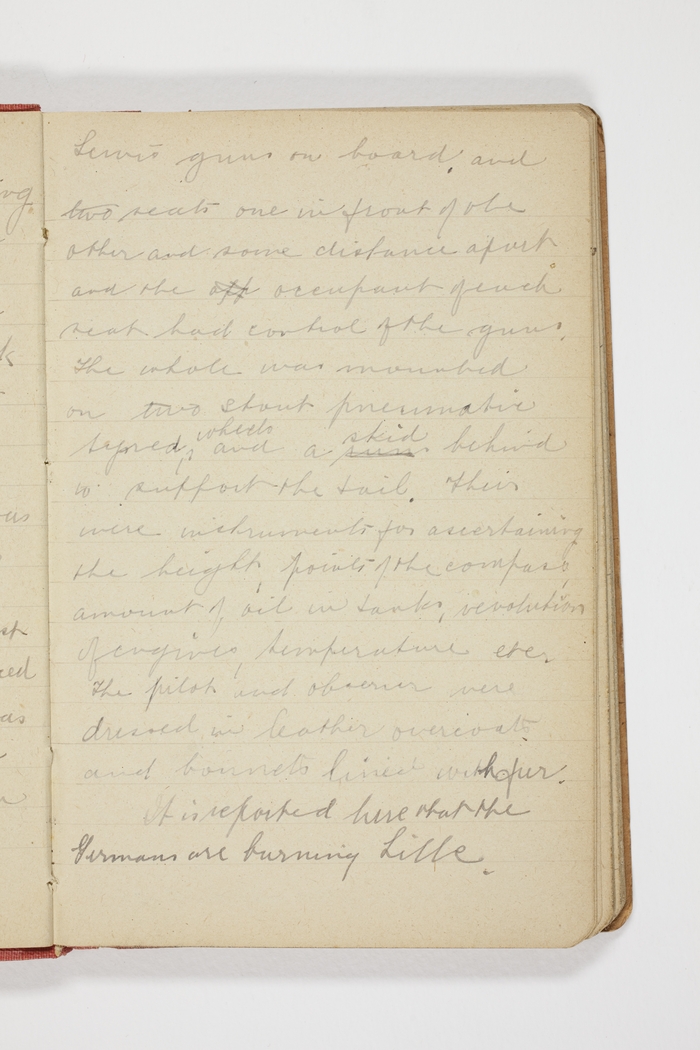 Lewis guns on board, and
two seats one in front of the
other and some distance apart
and the off occupant of each
seat had control of the guns.
The whole was mounted
on two stout pneumatic
wheels skid
tyred, and a runs behind
to support the tail. Their
were instruments for ascertaining
the height, points of the compass,
amount of oil in tanks, revolution
of engines, temperature etc.
The pilot and observer were
dressed in leather overcoats
and bonnets lined with fur.
It is reported here that the
Germans are burning Lille.